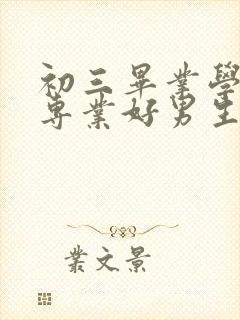 初三畢業學
專業好男生
業文景